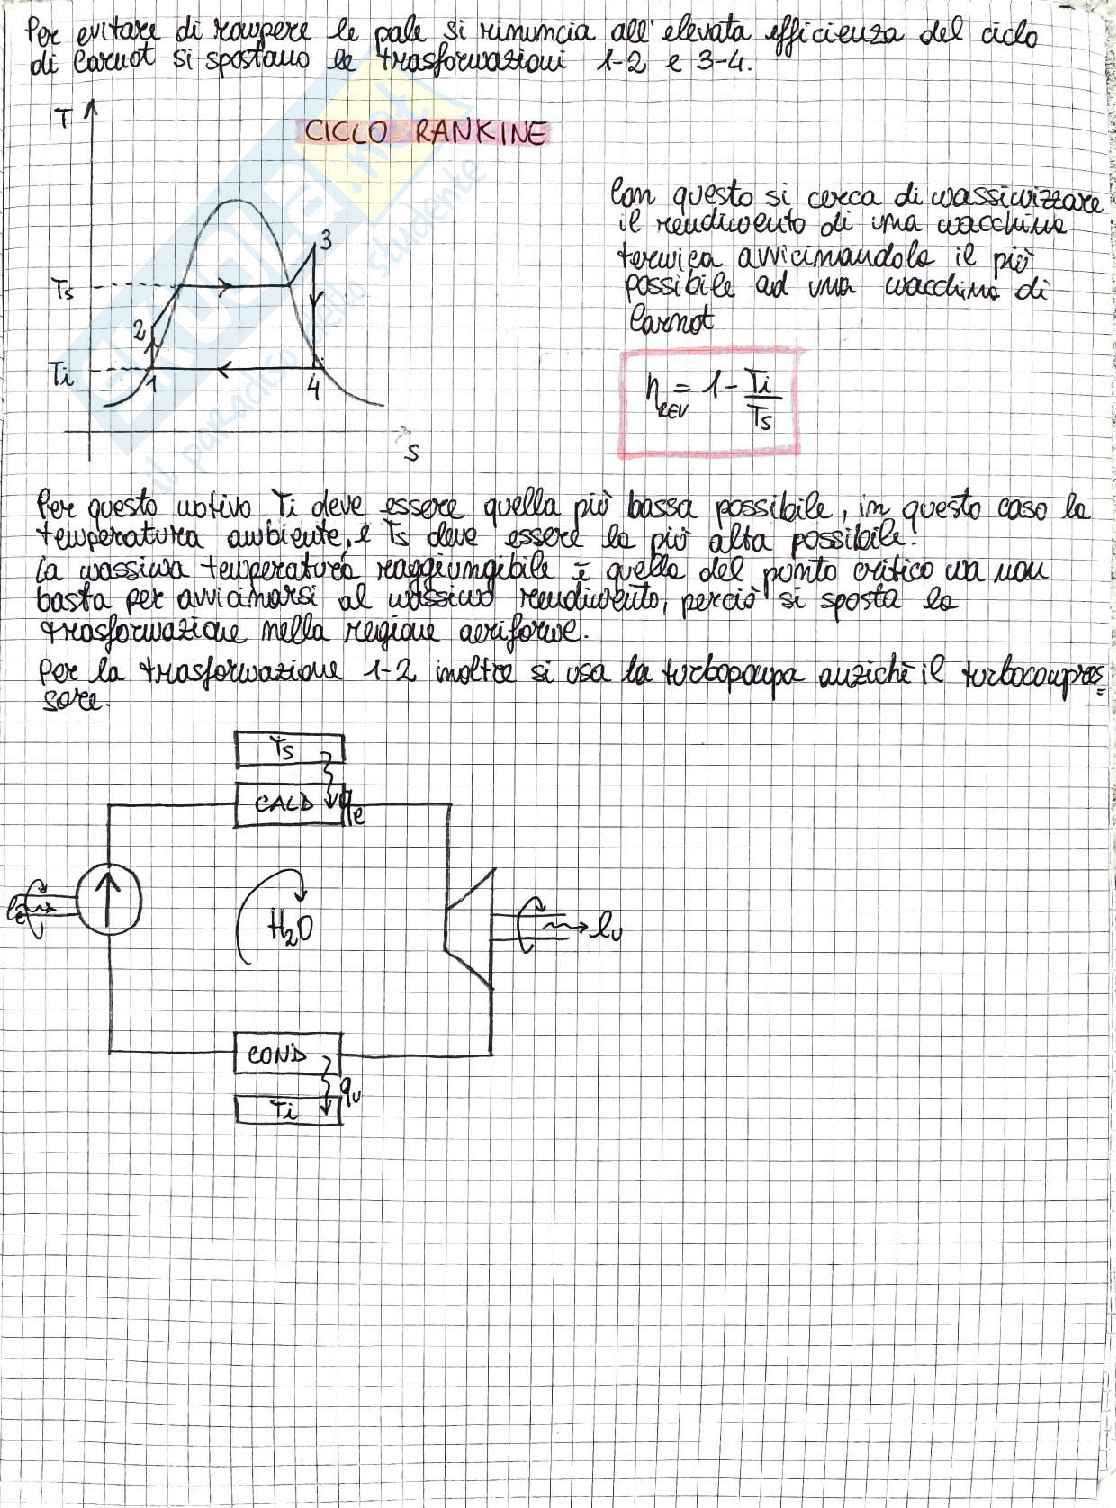 Per evitare di rompere le pale si rinuncia all'elevata efficienza del ciclo
di Carnot si spostano le trasformazioni 1-2 e 3-4.
T
CICLO RANKINE
3
Ts
2
Ti
1
4
S
Con questo si cerca di massimizzare
il rendimento di una macchina
termica avvicinandola il più
possibile ad una macchina di
Carnot
ηREV = 1 - Ti/Ts
Per questo motivo Ti deve essere quella più bassa possibile, in questo caso la
temperatura ambiente, e Ts deve essere la più alta possibile.
La massima temperatura raggiungibile è quella del punto critico ma non
basta per avvicinarsi al massimo rendimento, perciò si sposta la
trasformazione nella regione aeriforme.
Per la trasformazione 1-2 inoltre si usa la turbopompa anziché il turbocompres=
sore.
Ts
CALD
qe
le
H2O
lu
COND
qu
Ti